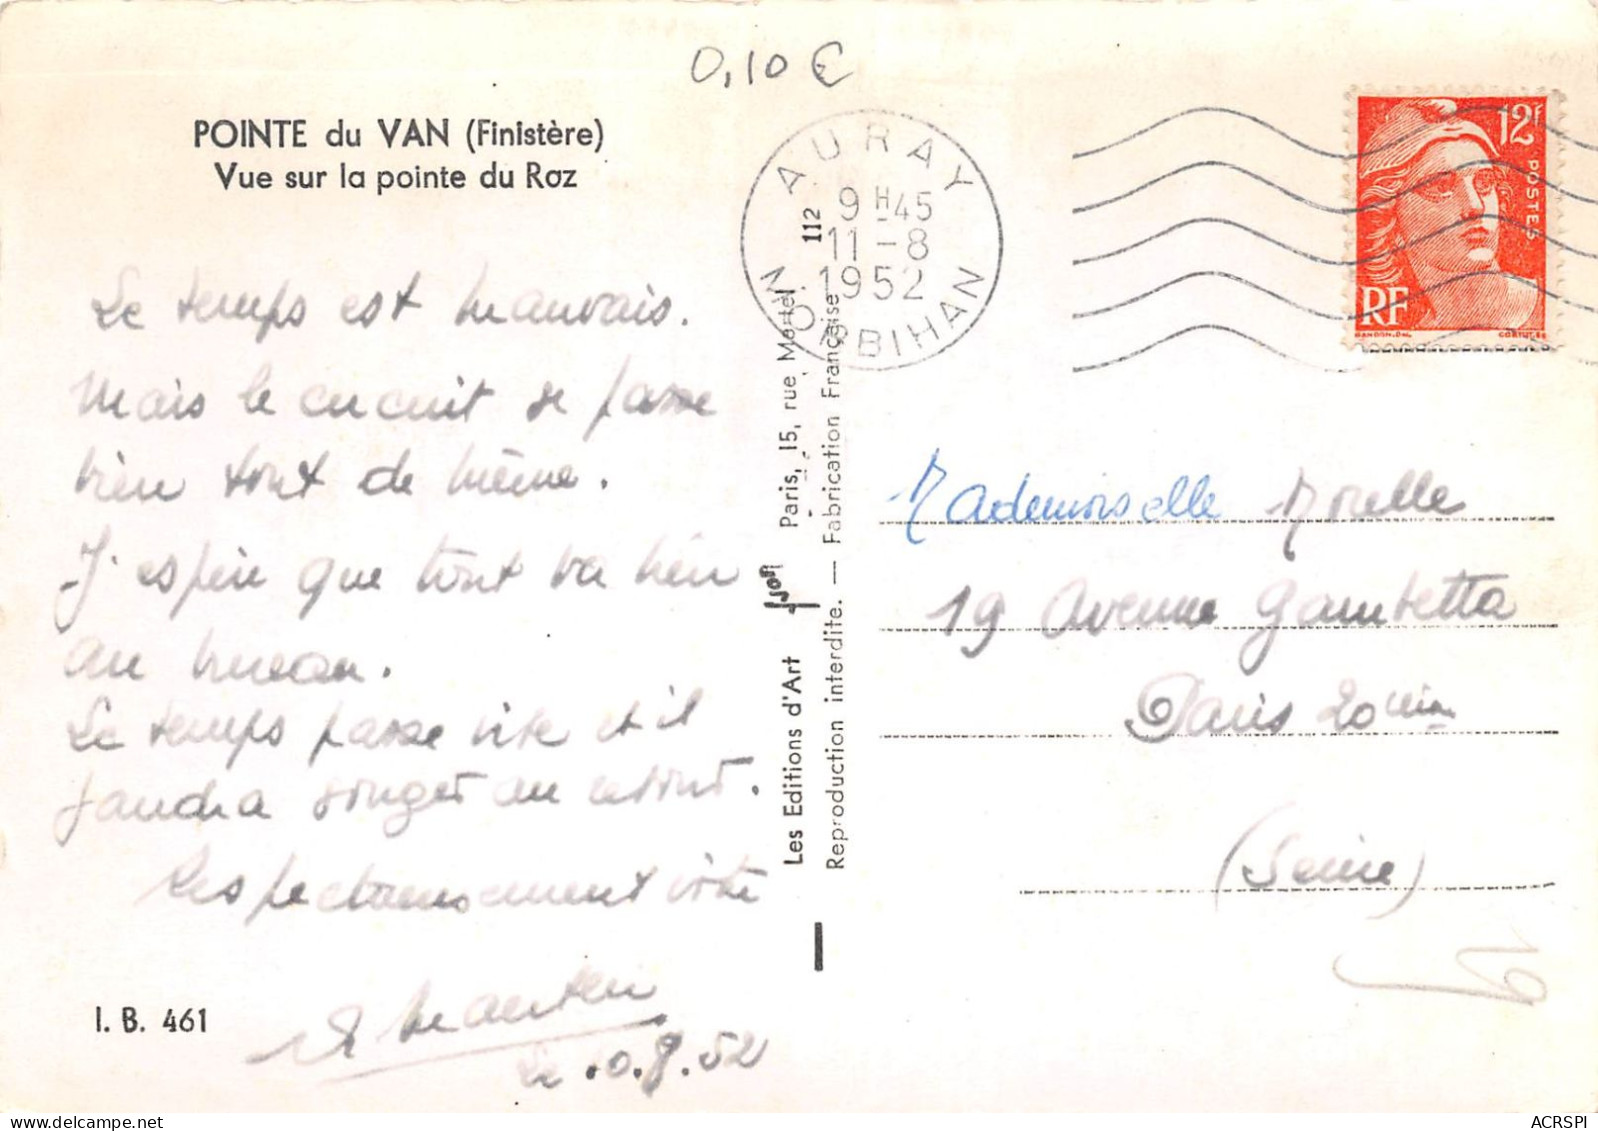 0,10 €
POINTE du VAN (Finistère)
Vue sur la pointe du Raz
Le temps est mauvais.
Mais le circuit se passe
bien tout de même.
J'espère que tout va bien
au bureau.
Le temps passe vite et il
faudra songer au retour.
Respectueusement vôtre
Le .0.8.52
I. B. 461
Les Editions d'Art
Yvon
Paris, 15, rue Martel
Reproduction interdite. — Fabrication Française
AURAY
112
9H45
11-8
1952
MORBIHAN
12F
POSTES
RF
GANDON.DEL.
CORTOT.SC
Mademoiselle Morelle
19 Avenue Gambetta
Paris 20eme
(Seine)
19
ACRSPI